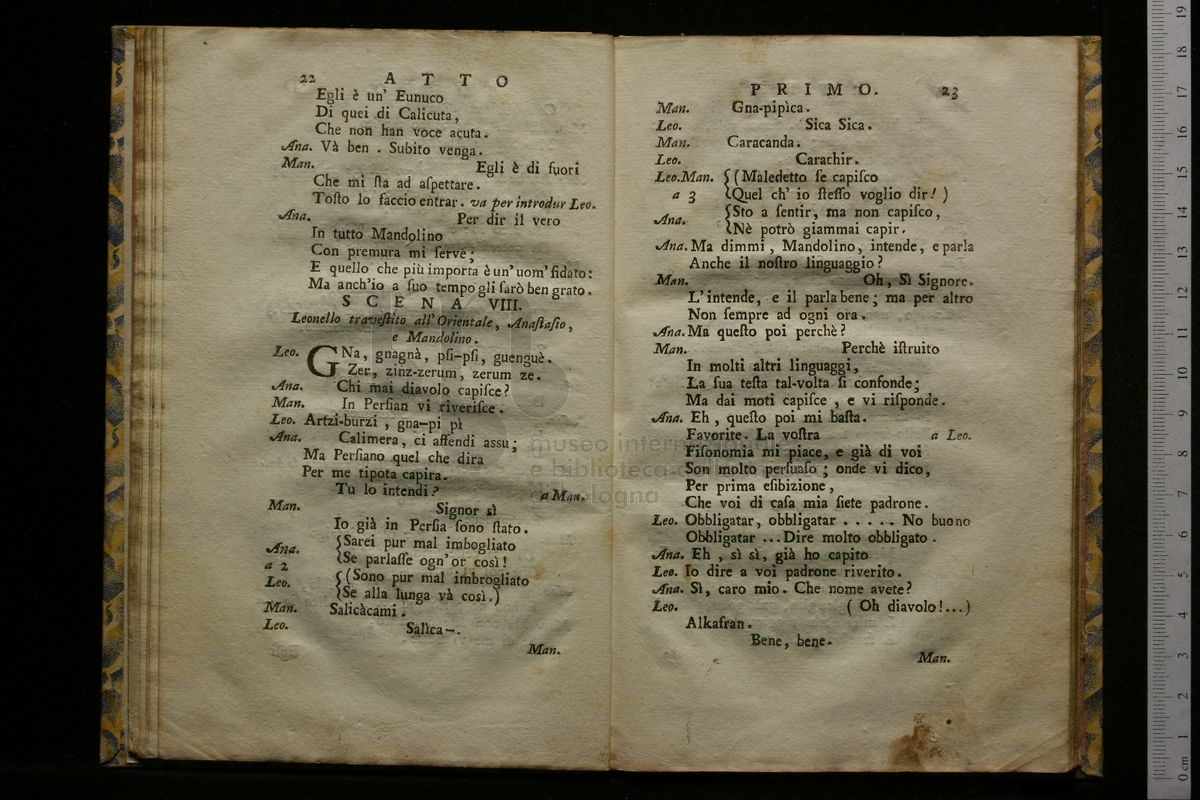 22 A T T O
Egli è un' Eunuco
Di quei di Calicuta,
Che non han voce acuta.
Ana. Và ben . Subito venga.
Man. Egli è di fuori
Che mi ſta ad aſpettare.
Toſto lo faccio entrar. va per introdur Leo.
Ana. Per dir il vero
In tutto Mandolino
Con premura mi ſerve;
E quello che più importa è un' uom' fidato:
Ma anch'io a ſuo tempo gli ſarò ben grato.
S C E N A VIII.
Leonello traveſtito all' Orientale, Anaſtaſio,
e Mandolino.
Leo. GNa, gnagnà, pſi-pſi, guenguè.
Zer, zinz-zerum, zerum ze.
Ana. Chi mai diavolo capiſce?
Man. In Perſian vi riveriſce.
Leo. Artzi-burzi , gna-pi pì
Ana. Calimera, ci affendi assu;
Ma Perſiano quel che dira
Per me tipota capira.
Tu lo intendi? a Man.
Man. Signor sì
Io già in Perſia ſono ſtato.
Ana. {Sarei pur mal imbogliato
a 2 {Se parlaſſe ogn'or così!
Leo. {(Sono pur mal imbrogliato
{Se alla lunga và così.)
Man. Salicàcami.
Leo. Salìca-.
Man.
P R I M O. 23
Man. Gna-pipìca.
Leo. Sica Sica.
Man. Caracanda.
Leo. Carachir.
Leo.Man. {(Maledetto ſe capiſco
a 3 {Quel ch' io ſteſſo voglio dir! )
Ana. {Sto a ſentir, ma non capiſco,
{Nè potrò giammai capir.
Ana. Ma dimmi, Mandolino, intende, e parla
Anche il noſtro linguaggio?
Man. Oh, Sì Signore.
L'intende, e il parla bene; ma per altro
Non ſempre ad ogni ora.
Ana. Ma queſto poi perchè?
Man. Perchè iſtruito
In molti altri linguaggi,
La ſua teſta tal-volta ſi confonde;
Ma dai moti capiſce , e vi riſponde.
Ana. Eh , queſto poi mi baſta.
Favorite. La voſtra a Leo.
Fiſonomia mi piace, e già di voi
Son molto perſuaſo ; onde vi dico,
Per prima eſibizione,
Che voi di caſa mia ſiete padrone.
Leo. Obbligatar, obbligatar ..... No buono
Obbligatar ...Dire molto obbligato.
Ana. Eh , sì sì, già ho capito
Leo. Io dire a voi padrone riverito.
Ana. Sì, caro mio. Che nome avete?
Leo. ( Oh diavolo!...)
Alkafran.
Bene, bene.
Man.
museo internazionale
e biblioteca della musica
di bologna